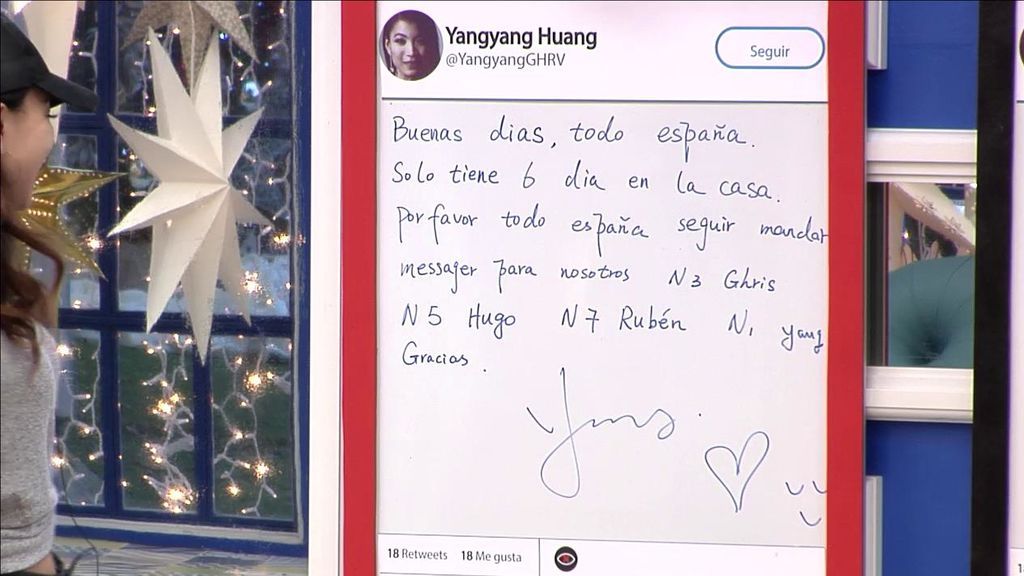 Yangyang Huang
@YangyangGHRV
Seguir
Buenas dias, todo españa.
Solo tiene 6 dia en la casa.
porfavor todo españa seguir mandar
messager para nosotros N3 Ghris
N5 Hugo N7 Rubén N1 yang
Gracias.
Yang.
18 Retweets 18 Me gusta